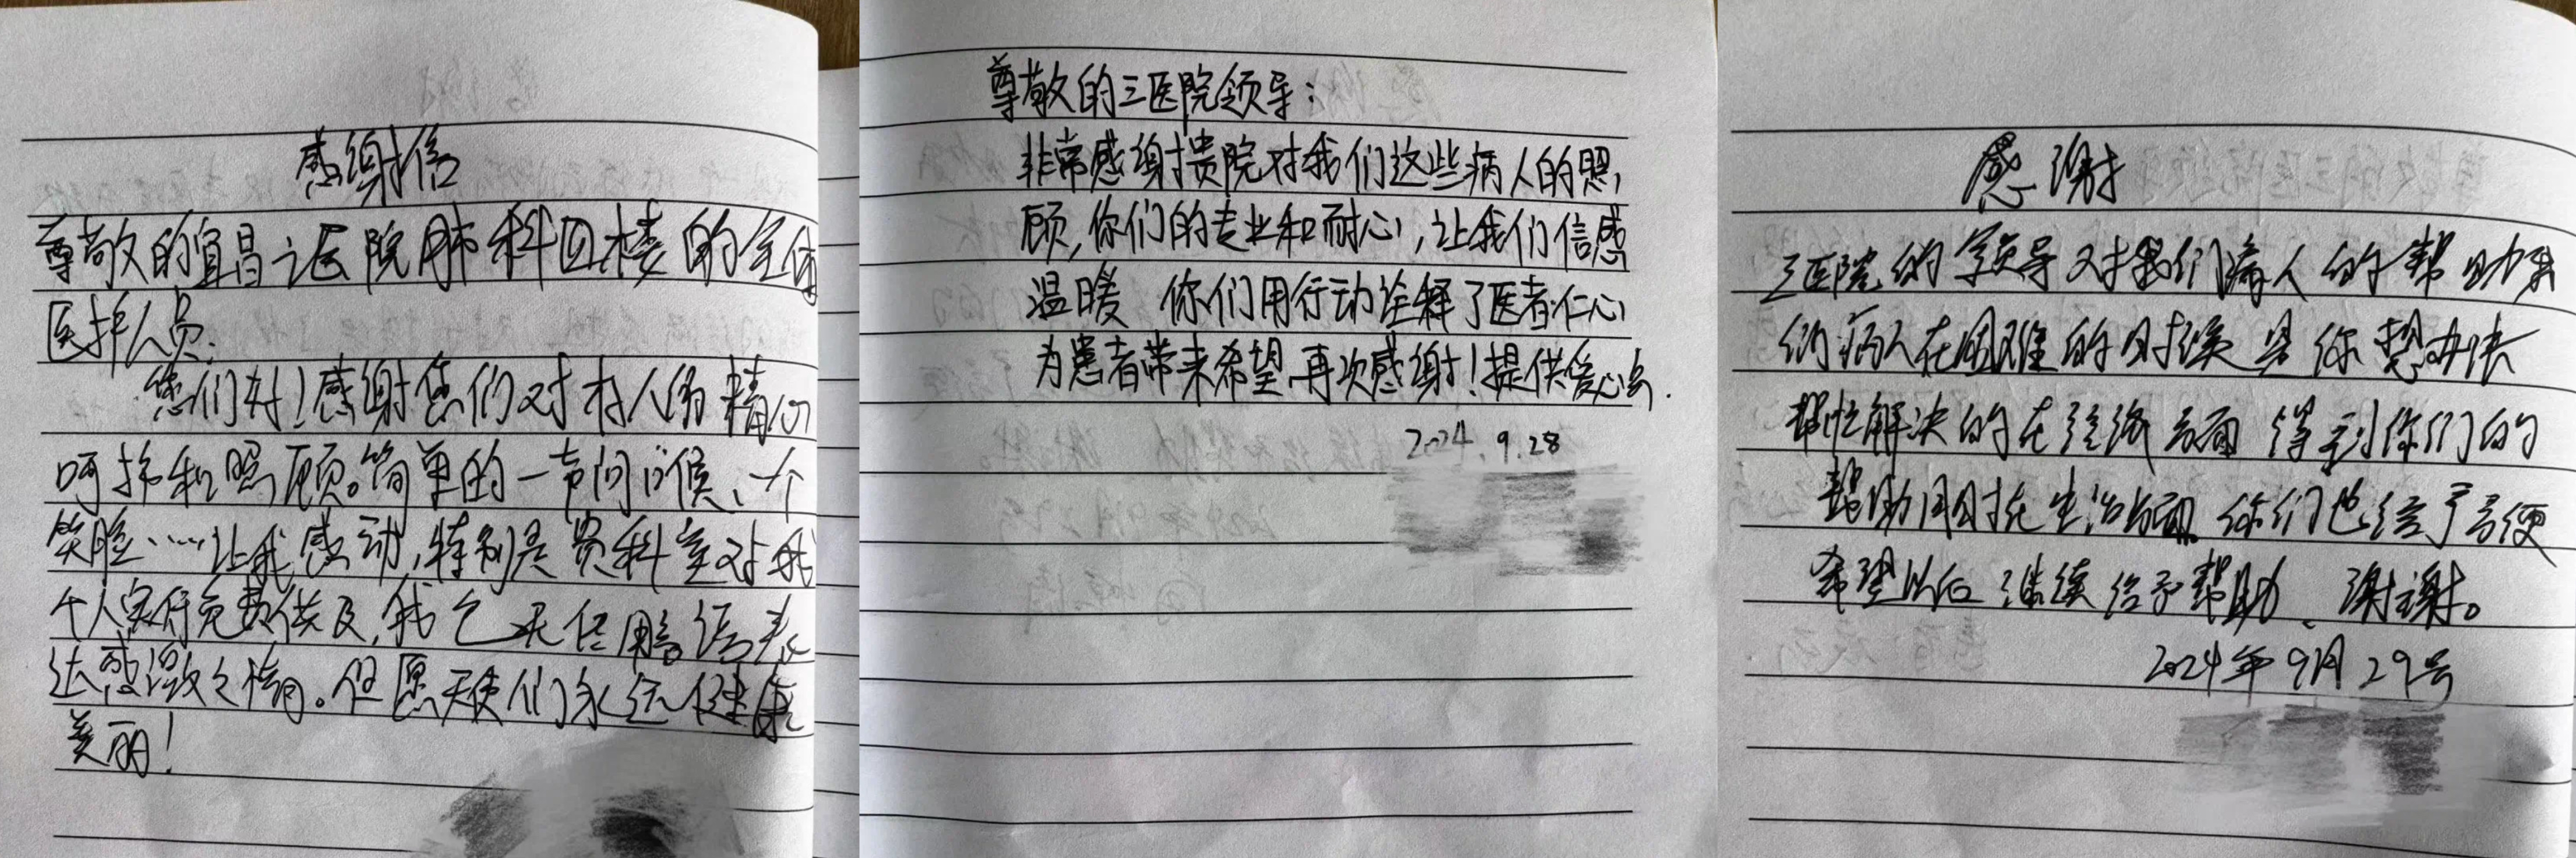 感谢信
尊敬的宜昌三医院肺科四楼的全体
医护人员:
您们好!感谢您们对本人的精心
呵护和照顾。简单的一声问候、一个
笑脸……让我感动,特别是贵科室对我
个人实行免费供及,我已无法用言语表
达感激之情。但愿天使们永远健康
美丽!
尊敬的三医院领导:
非常感谢贵院对我们这些病人的照,
顾,你们的专业和耐心,让我们倍感
温暖 你们用行动诠释了医者仁心
为患者带来希望,再次感谢!提供爱心
2024.9.28
感谢
三医院的领导对我们病人的帮助我
们病人在困难的时候是你想办法
帮忙解决的在经济方面得到你们的
帮助同时在生活方面你们也给了方便
希望以后继续给予帮助、谢谢。
2024年9月29号